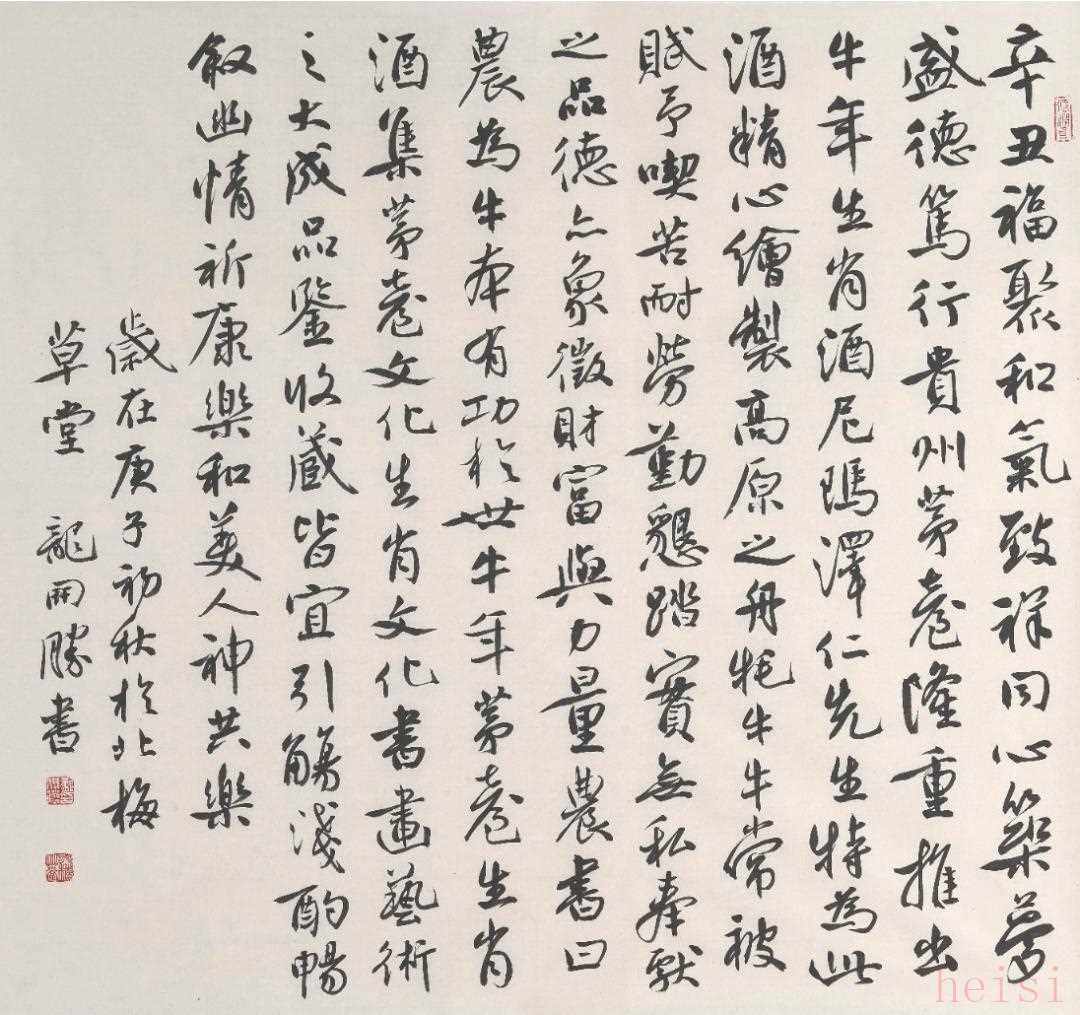 辛丑福聚和氣致祥同心築夢
盛德篤行貴州茅臺隆重推出
牛年生肖酒尼瑪澤仁先生特為此
酒精心繪製高原之舟牦牛牛常被
賦予喫苦耐勞勤懇踏實無私奉獻
之品德亦象徵財富與力量農書曰
農為牛本有功於世牛年茅臺生肖
酒集茅臺文化生肖文化書畫藝術
之大成品鑒收藏皆宜引觴淺酌暢
敘幽情祈康樂和美人神共樂
歲在庚子初秋於北梅
草堂 龍開勝書
heisi